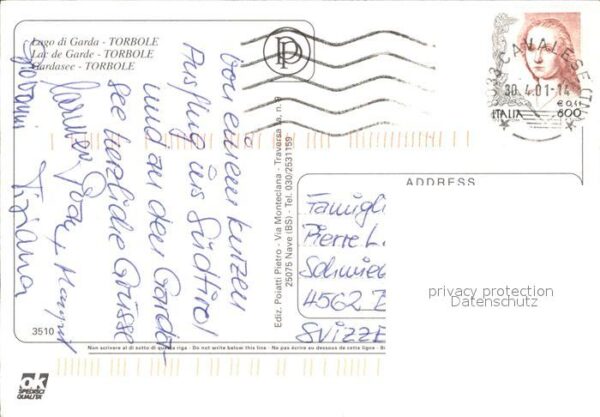 Lago di Garda - TORBOLE
Lac de Garde - TORBOLE
Gardasee - TORBOLE
Von einem kurzen
Ausflug ins Südtirol
und an den Garda-
see herzliche Grüsse
Tiziana
Giovanni
3510
ok
SPEDISCI
QUALITÀ
Ediz. Poiatti Pietro - Via Monteclana - Traversa va, n. 9
25075 Nave (BS) - Tel. 030/2531159
P
CAVALESE (TN)
30.4.01-14
€ 0,31
ITALIA 600
ADDRESS
Famigl
Pierre L.
Schwie
4562 B
SVIZZE
privacy protection
Datenschutz
Non scrivere al di sotto di questa riga - Do not write below this line - Ne pas écrire au dessous de cette ligne - Bi